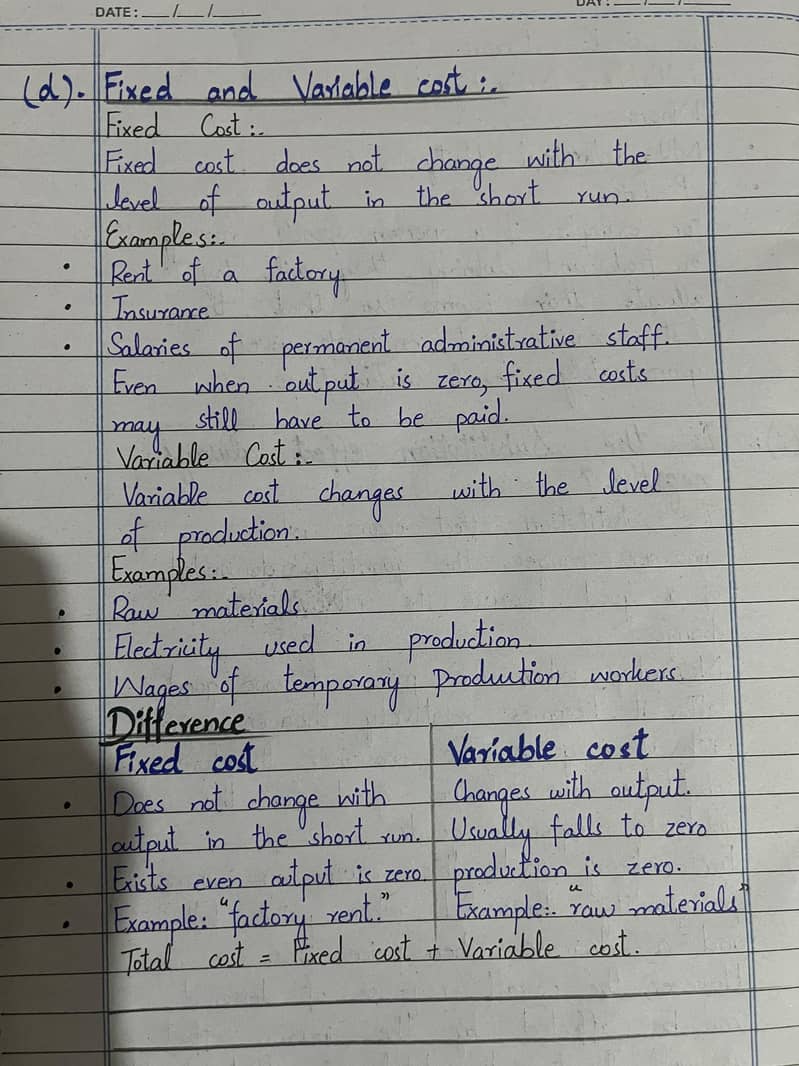 DATE: __/__/__
DAY: __/__/__
(d). Fixed and Variable cost :-
Fixed Cost :-
Fixed cost does not change with the
level of output in the short run.
Examples:-
• Rent of a factory
• Insurance
• Salaries of permanent administrative staff.
Even when output is zero, fixed costs
may still have to be paid.
Variable Cost :-
Variable cost changes with the level
of production.
Examples:-
• Raw materials
• Electricity used in production
• Wages of temporary Production workers
Difference
Fixed cost
• Does not change with
output in the short run.
• Exists even output is zero.
• Example: "factory rent."
Variable cost
Changes with output.
Usually falls to zero
production is zero.
Example:- "raw materials"
Total cost = Fixed cost + Variable cost.